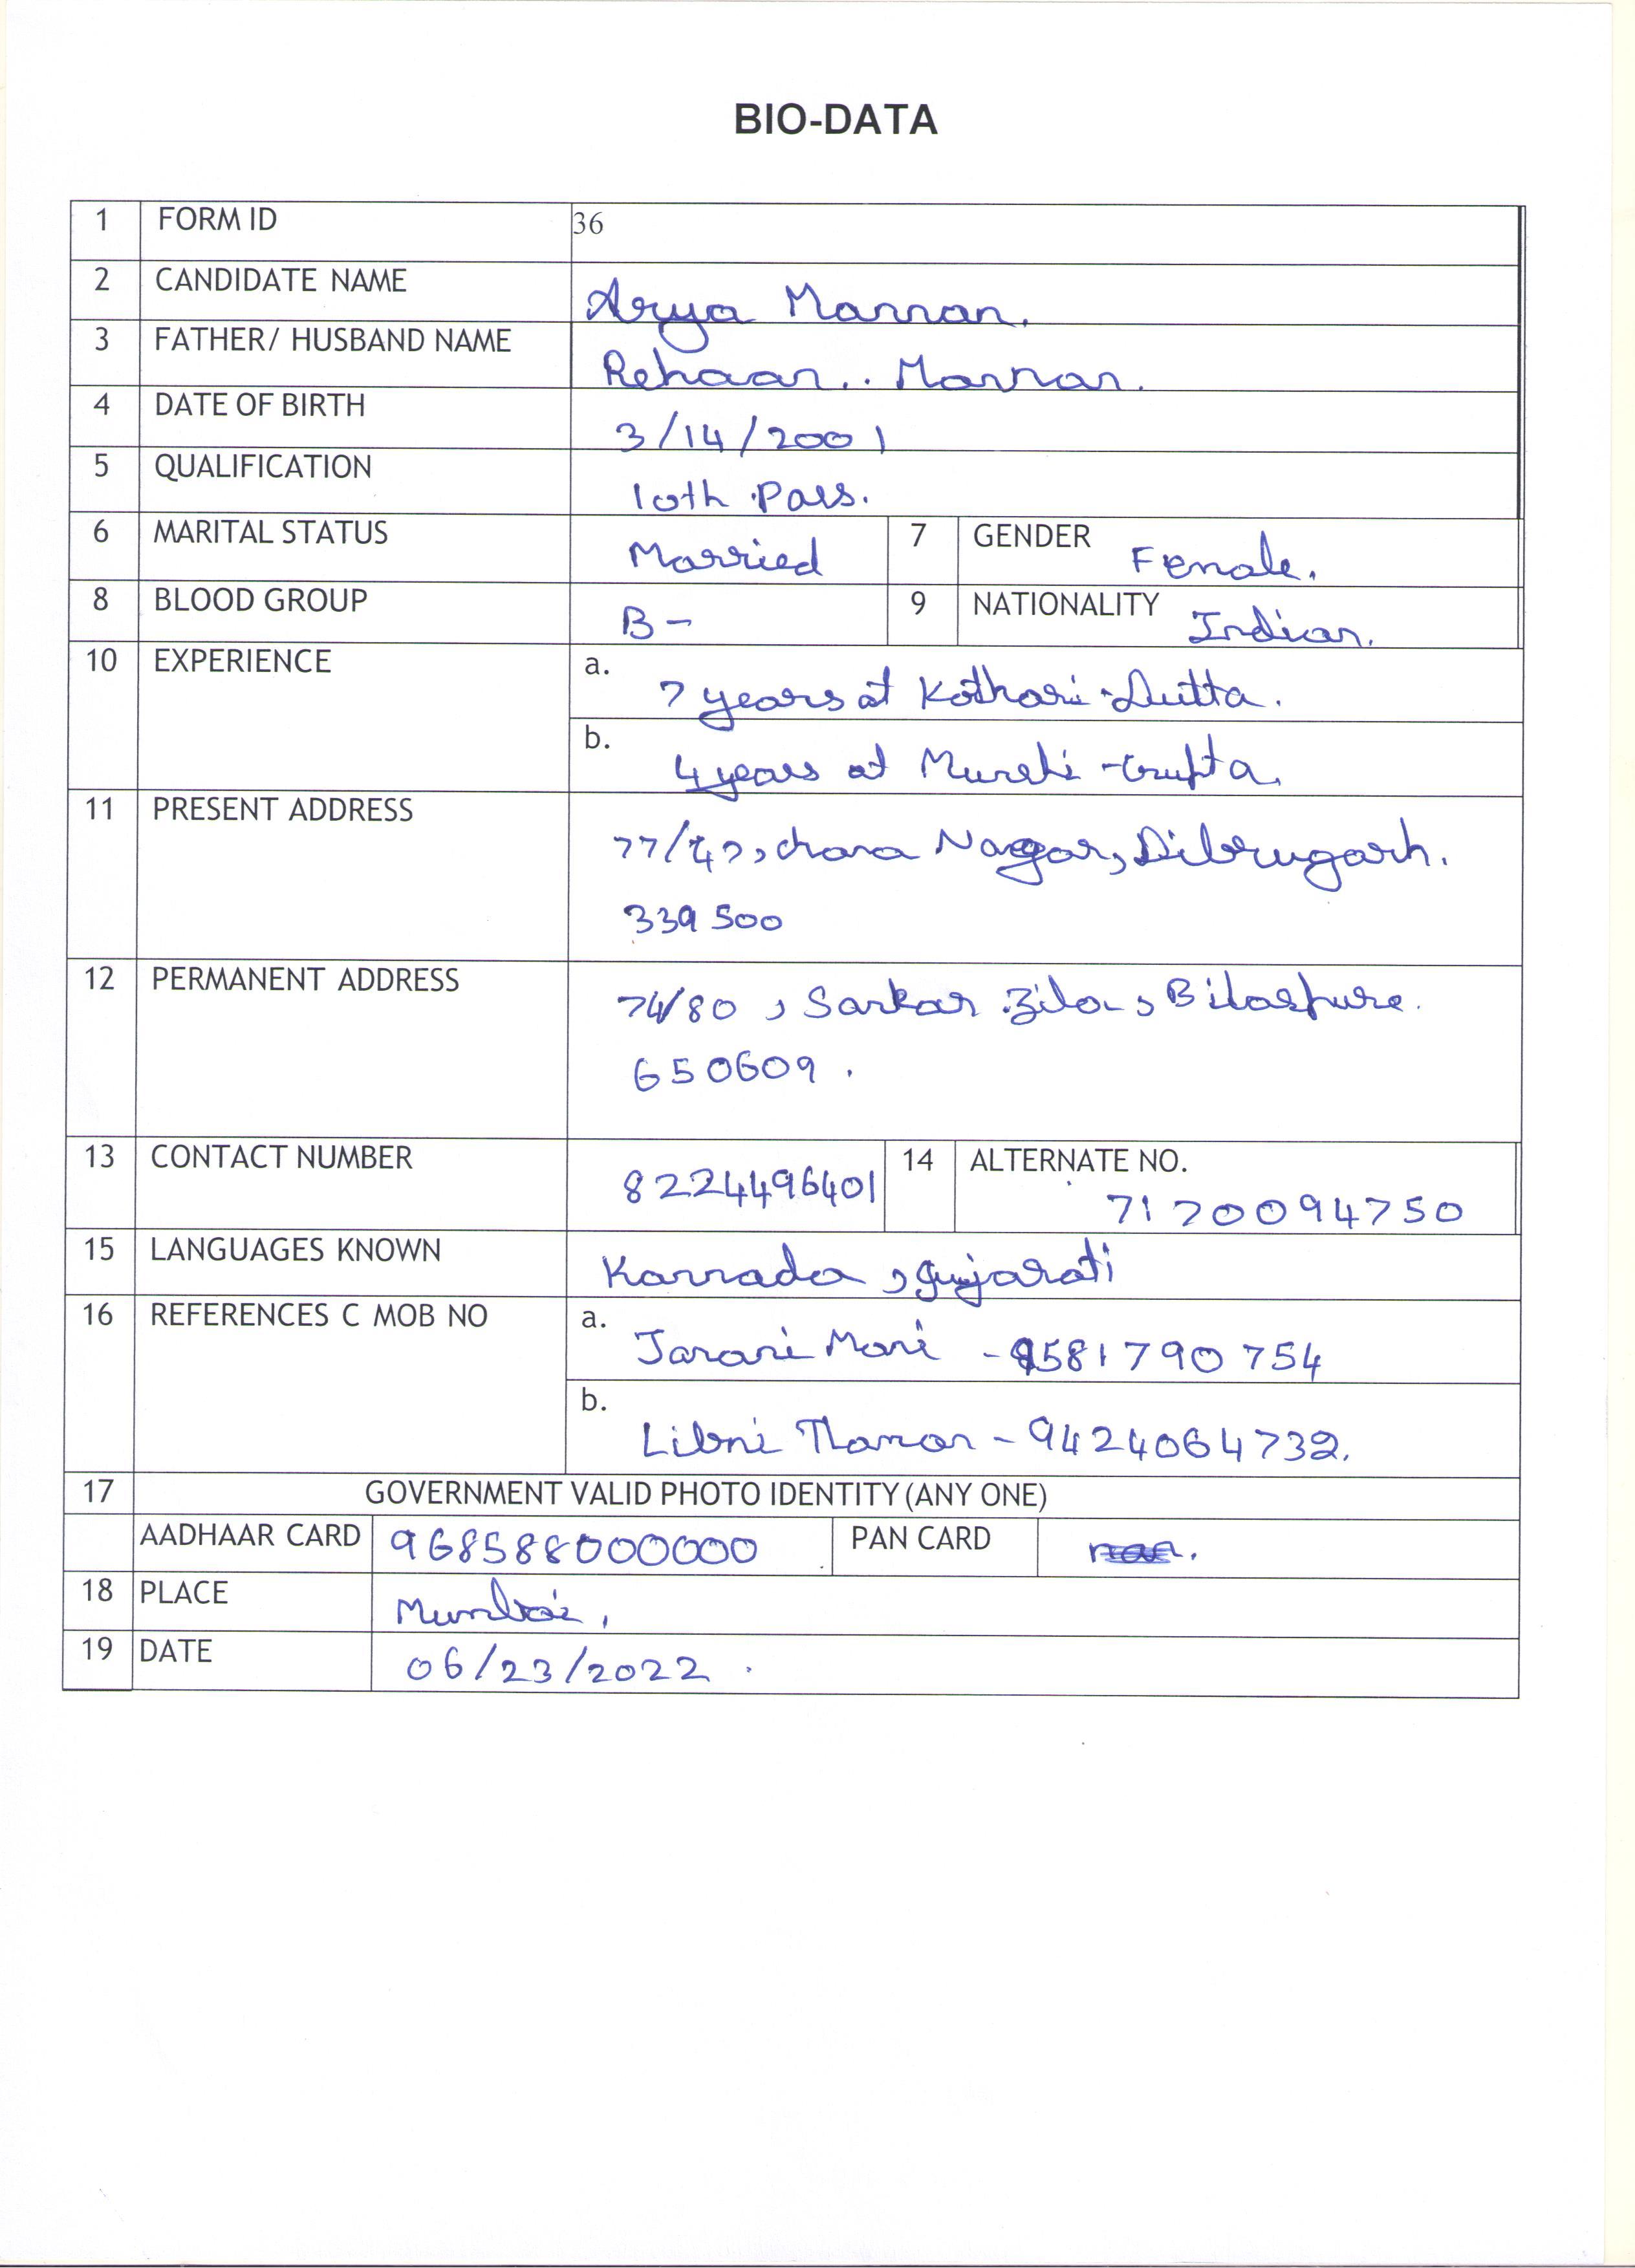 BIO-DATA
1 FORM ID 36
2 CANDIDATE NAME Arya Mannan.
3 FATHER/ HUSBAND NAME Rehaan.. Mannan.
4 DATE OF BIRTH 3/14/2001
5 QUALIFICATION 10th Pass.
6 MARITAL STATUS Married 7 GENDER Female.
8 BLOOD GROUP B- 9 NATIONALITY Indian.
10 EXPERIENCE a. 7 years at Kothari-Dutta.
b. 4 years at -Gupta.
11 PRESENT ADDRESS Nagar, Dibrugarh.
339500
12 PERMANENT ADDRESS 74/80, Sarkar Zila, Bilaspure.
650609.
13 CONTACT NUMBER 8224496401 14 ALTERNATE NO.
7170094750
15 LANGUAGES KNOWN Kannada, gujarati
16 REFERENCES C MOB NO a. Mani - 9581790754
b. Libni Thaman - 9424064732.
17 GOVERNMENT VALID PHOTO IDENTITY (ANY ONE)
AADHAAR CARD 968588000000 PAN CARD
18 PLACE Mumbai,
19 DATE 06/23/2022.